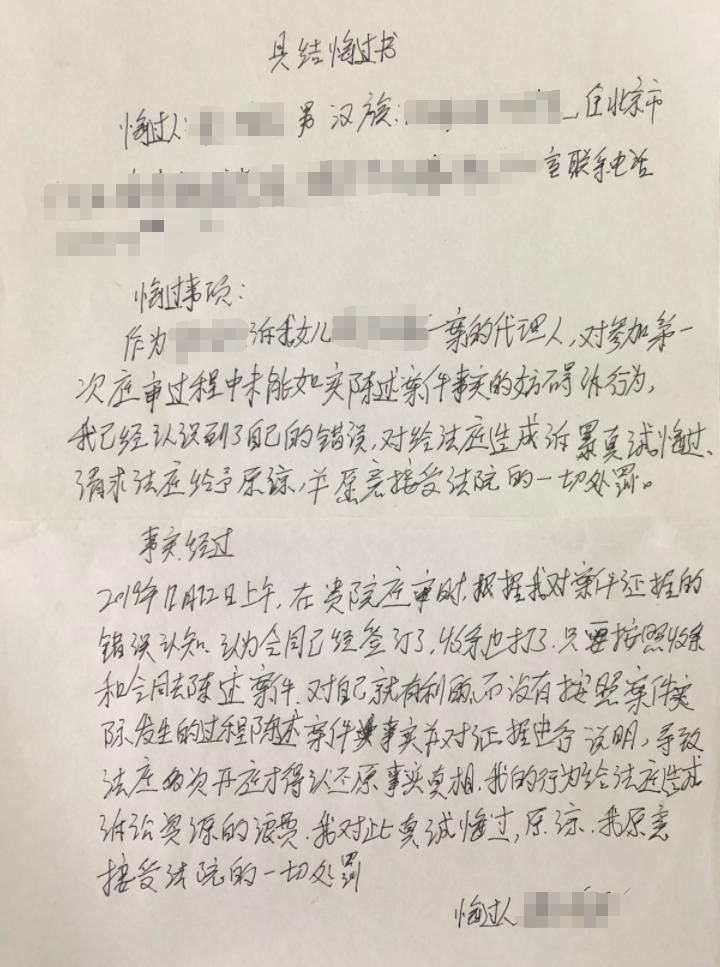 具结悔过书
悔过人: 男 汉族: 住北京市
室联系电话
悔过事项:
作为 诉我女儿 一案的代理人,对参加第一
次庭审过程中未能如实陈述案件事实的妨碍诉行为,
我已经认识到了自己的错误,对给法庭造成诉累真诚悔过、
请求法庭给予原谅,并愿意接受法院的一切处罚。
事实经过
2019年12月12日上午,在贵院庭审时,根据我对案件证据的
错误认知、认为合同已经签订了,收条也打了,只要按照收条
和合同去陈述案件,对自己就有利的,而没有按照案件实
际发生的过程陈述案件事实并对证据进行说明,导致
法庭两次开庭才得以还原事实真相,我的行为给法庭造成
诉讼资源的浪费,我对此真诚悔过,原谅,我愿意
接受法院的一切处罚
悔过人